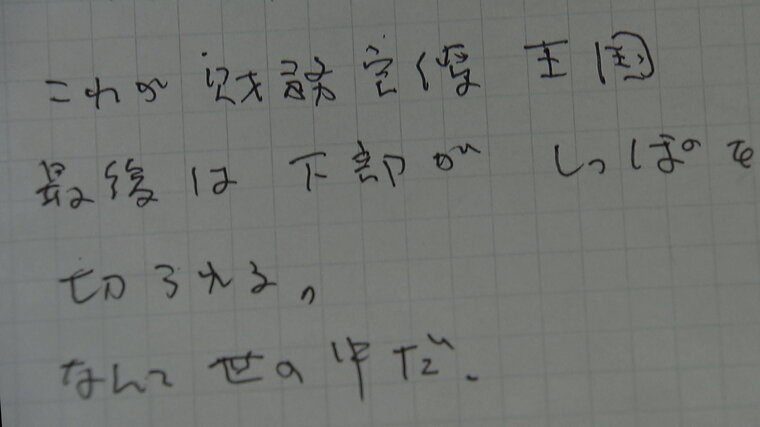 これが 談合優 王国
最後は 下部が しっぽを
切られる。
なんて 世の中だ。